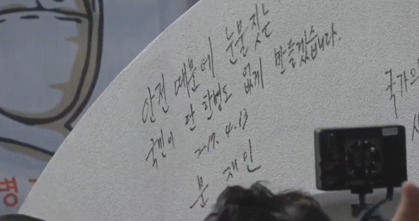 안전 때문에 눈물짓는
국민이 단 한명도 없게 만들겠습니다.
2017. 4. 13
문 재 인
국가의